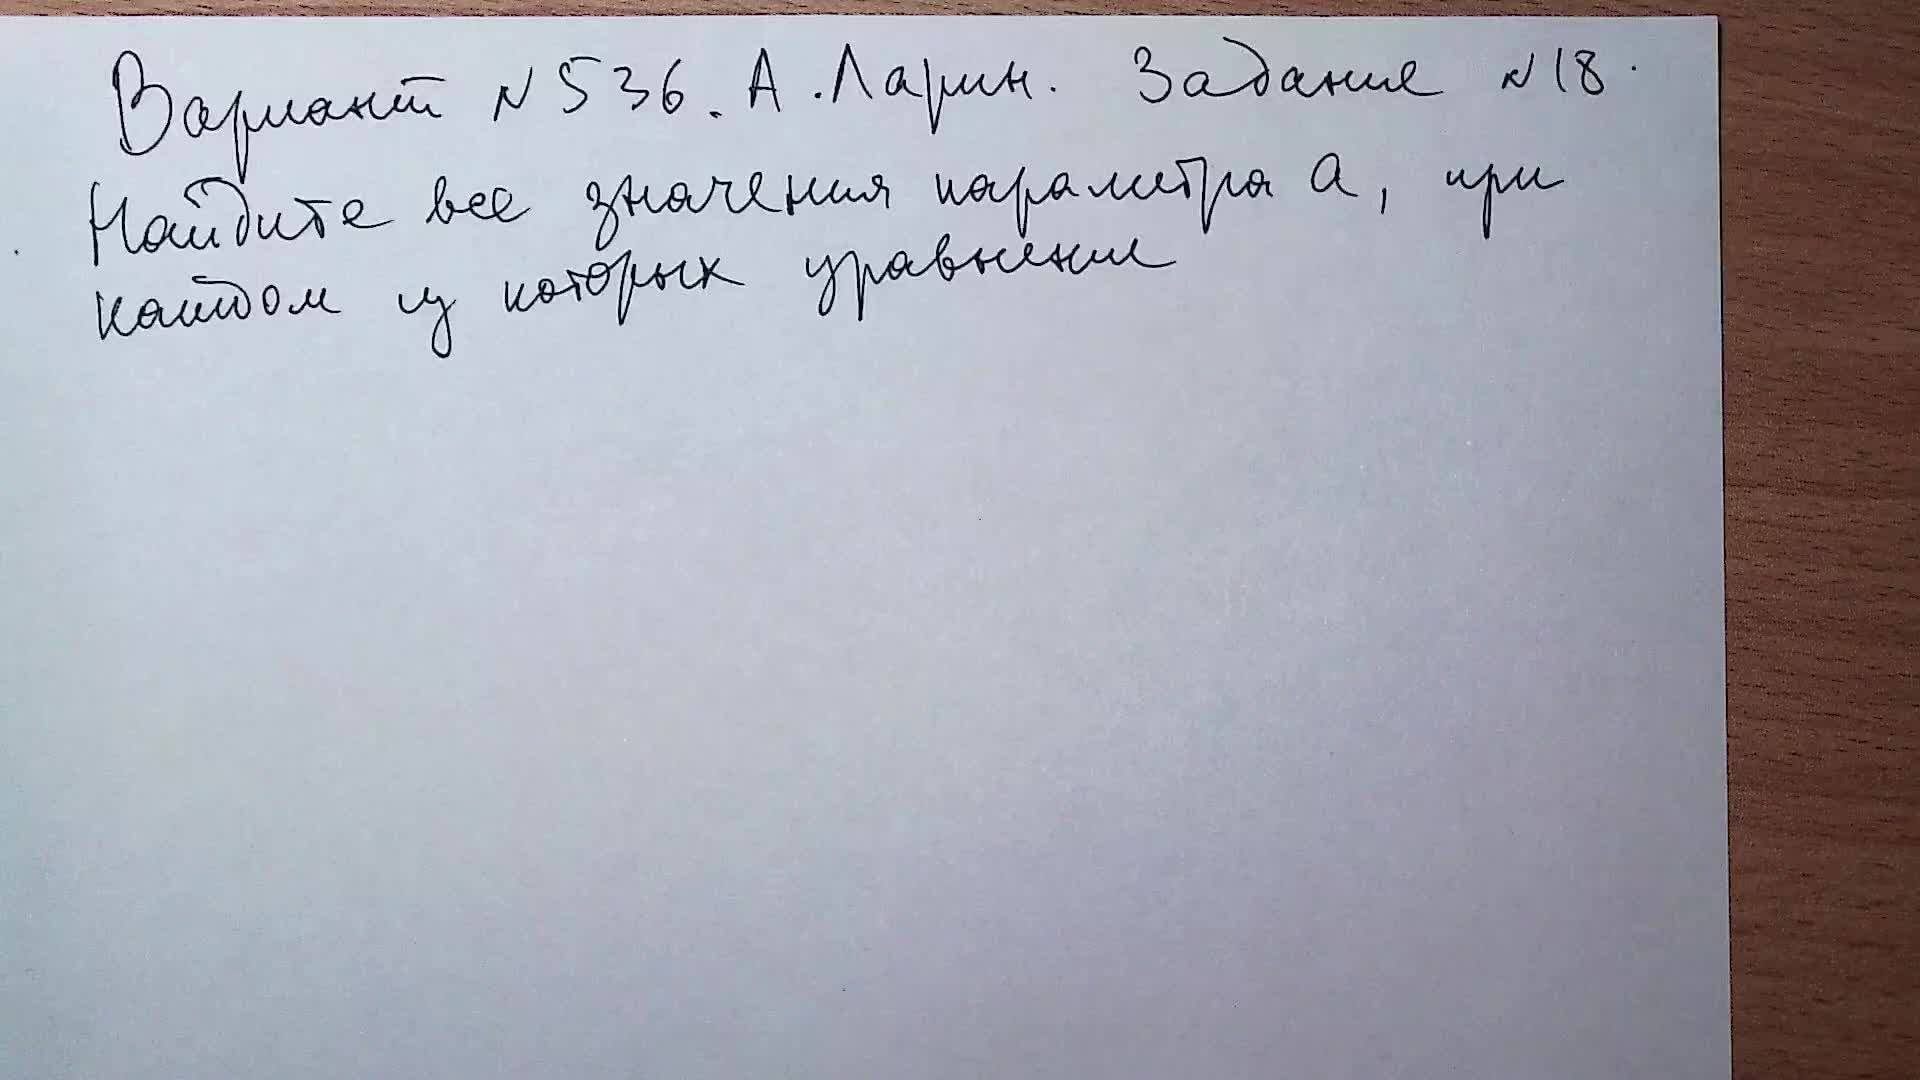 Вариант №536. А. Ларин. Задание №18.
Найдите все значения параметра а, при
каждом из которых уравнение